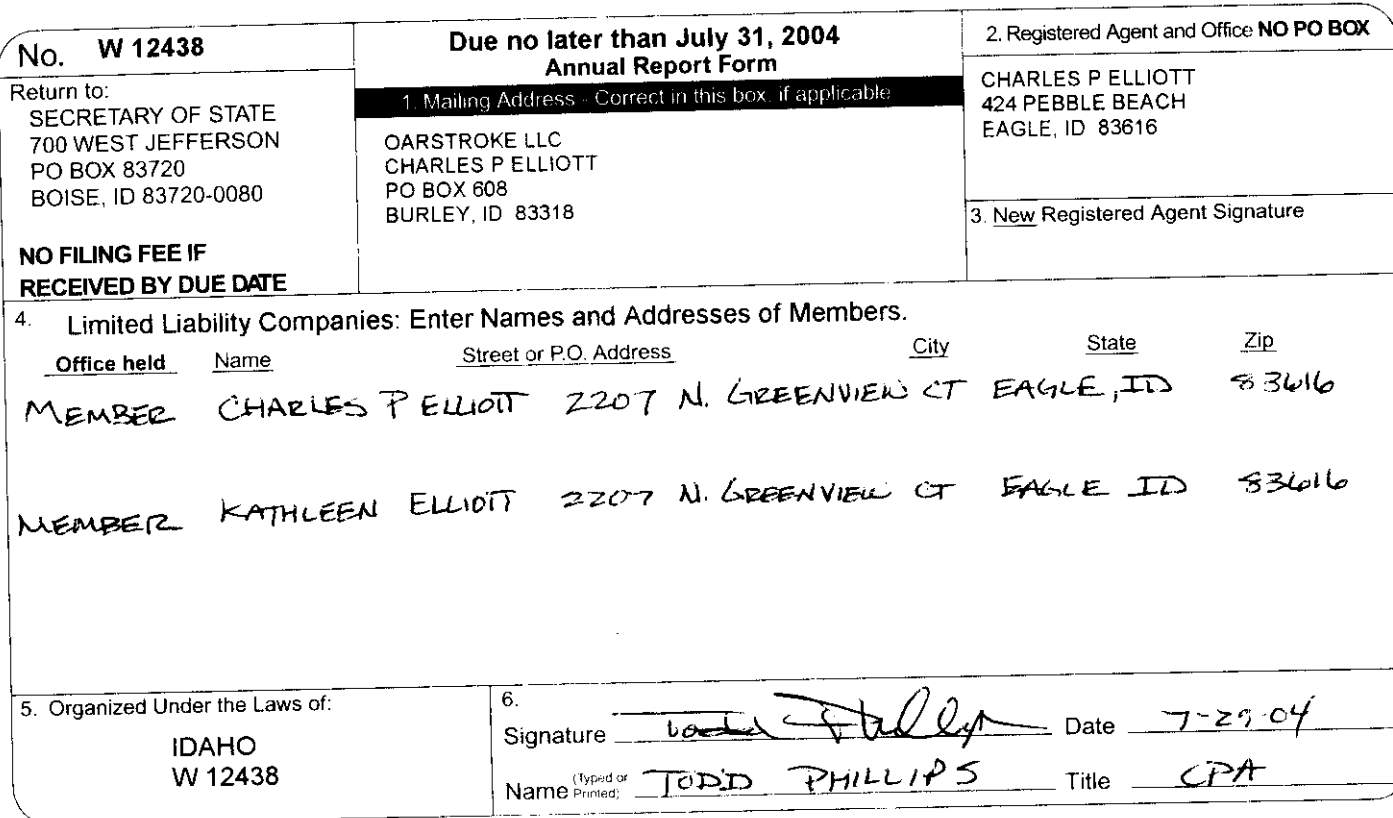 No. W 12438
Return to:
SECRETARY OF STATE
700 WEST JEFFERSON
PO BOX 83720
BOISE, ID 83720-0080
NO FILING FEE IF
RECEIVED BY DUE DATE
Due no later than July 31, 2004
Annual Report Form
1. Mailing Address - Correct in this box, if applicable
OARSTROKE LLC
CHARLES P ELLIOTT
PO BOX 608
BURLEY, ID 83318
2. Registered Agent and Office NO PO BOX
CHARLES P ELLIOTT
424 PEBBLE BEACH
EAGLE, ID 83616
3. New Registered Agent Signature
4. Limited Liability Companies: Enter Names and Addresses of Members.
Office held Name Street or P.O. Address City State Zip
MEMBER CHARLES P ELLIOTT 2207 N. GREENVIEW CT EAGLE, ID 83616
MEMBER KATHLEEN ELLIOTT 2207 N. GREENVIEW CT EAGLE ID 83616
5. Organized Under the Laws of:
IDAHO
W 12438
6.
Signature Todd Phillips Date 7-29-04
Name (Typed or Printed) TODD PHILLIPS Title CPA